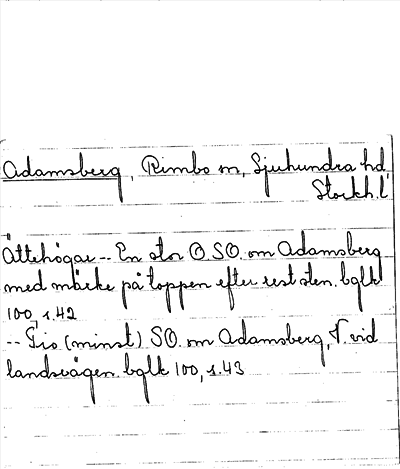 Adamsberg, Rimbo sn, Sjuhundra hd
Stockh. l
Ättehögar -- En stor O.SO. om Adamsberg
med märke på toppen efter rest sten. bglk
100, s. 42
-- Tio (minst) SO. om Adamsberg, V. vid
landsvägen. bglk 100, s. 43